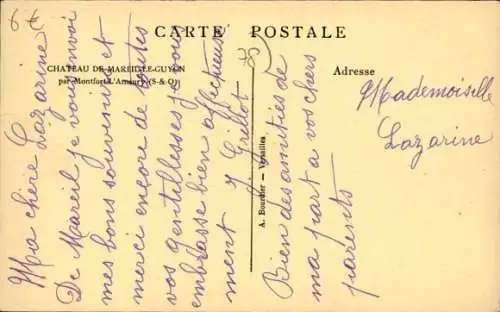 6 €
CARTE POSTALE
CHATEAU DE MAREIL-LE-GUYON
par Montfort-L'Amaury (S-&-O)
Adresse
A. Bourdier — Versailles
Ma chère Lazarine
De Mareil je vous envoi
mes bons souvenirs et
merci encore de toutes
vos gentillesses je vous
embrasse bien affectueuse
ment Y Grillot
Bien des amitiés de
ma part a vos chers
parents
Mademoiselle
Lazarine